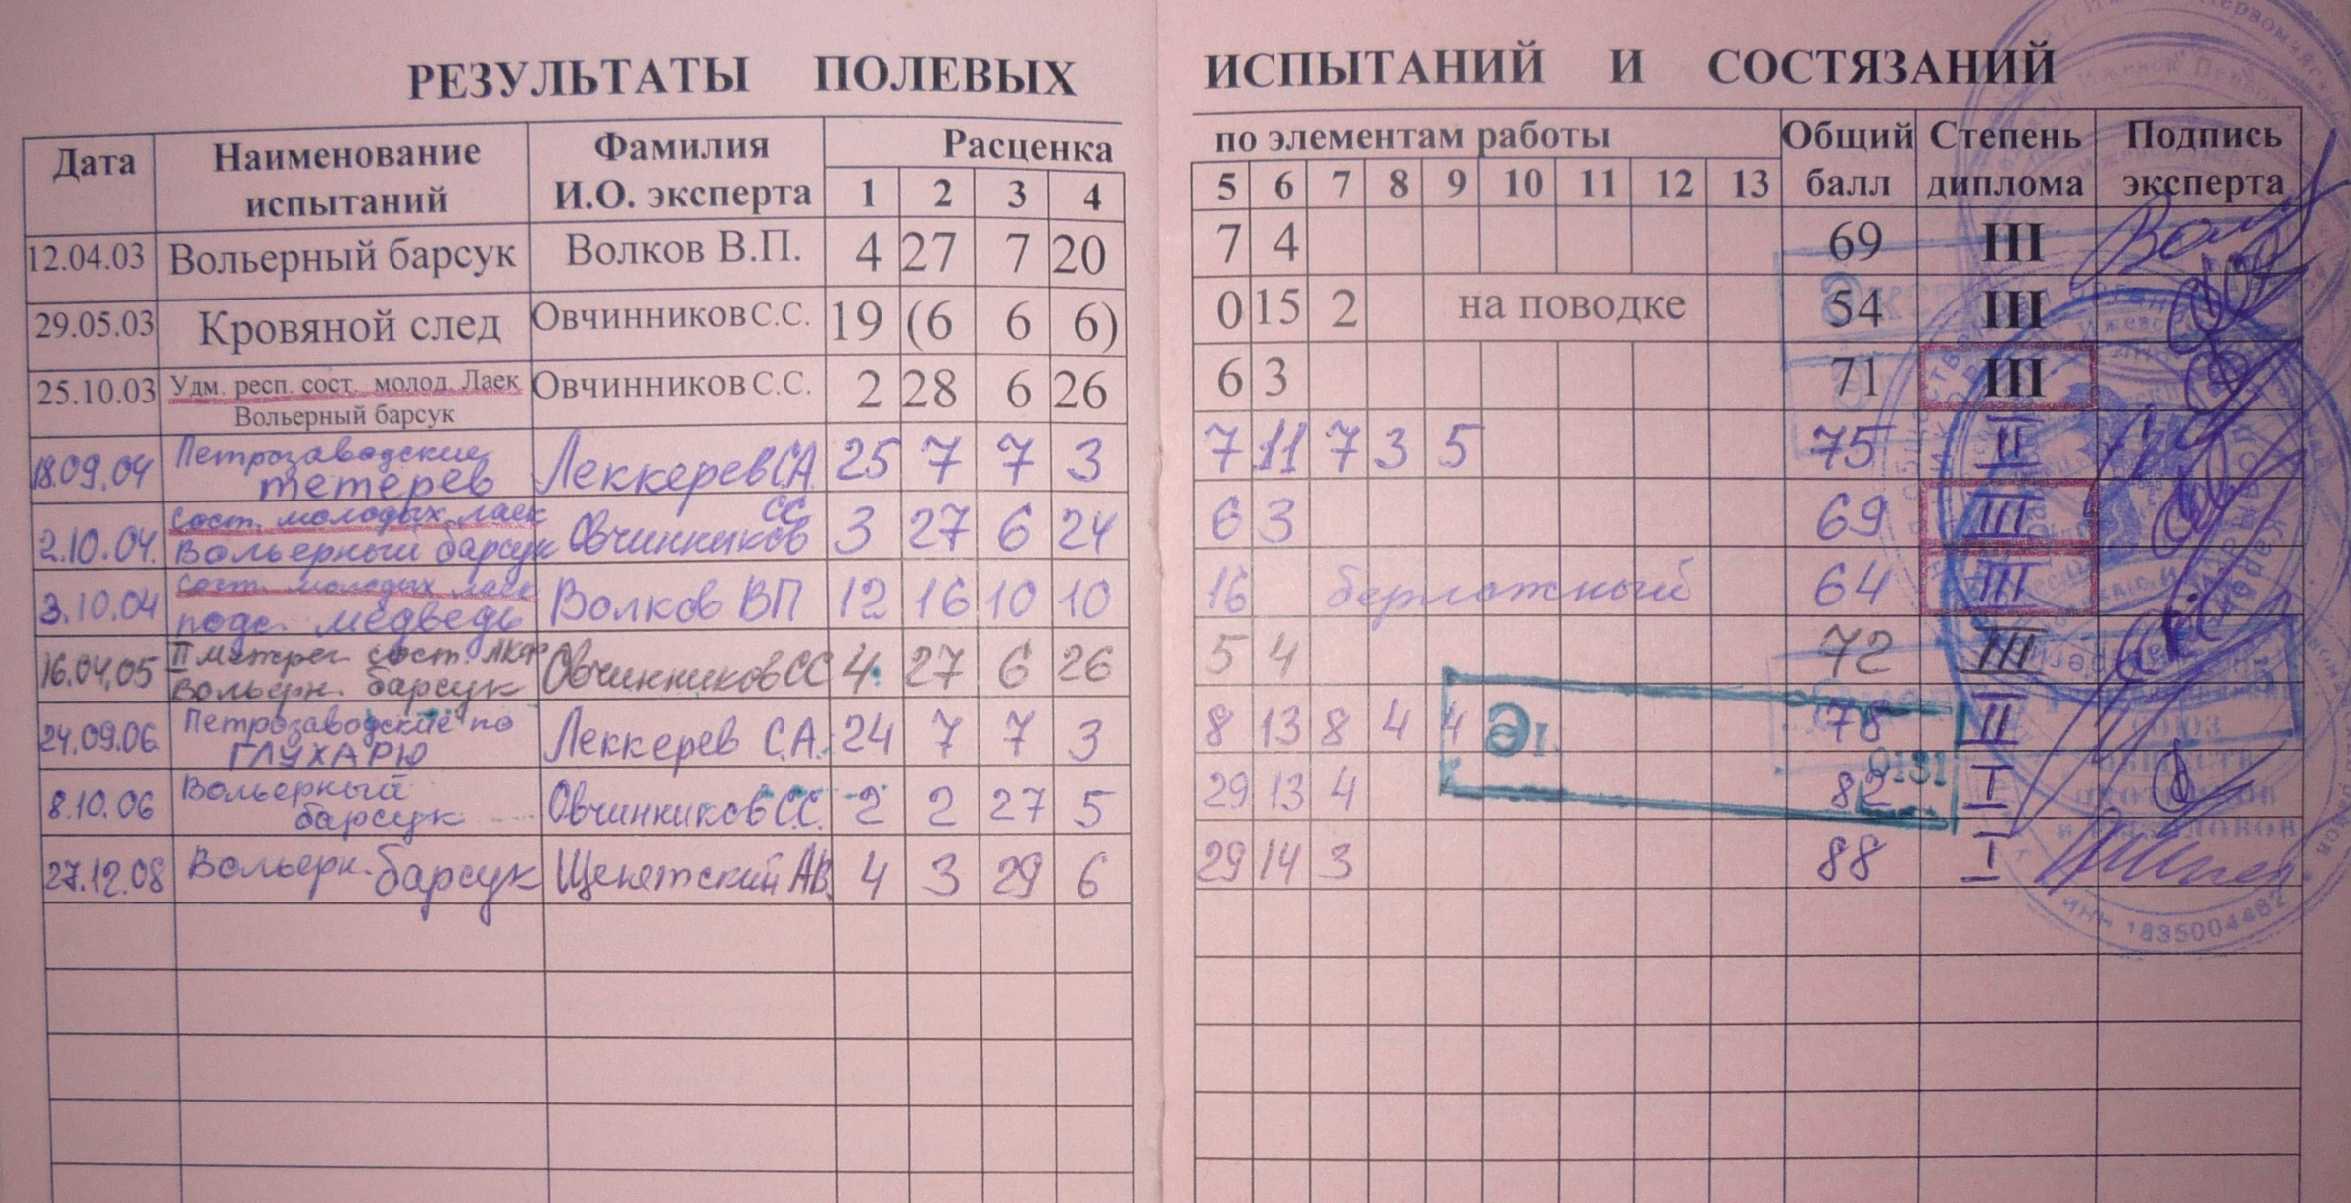 РЕЗУЛЬТАТЫ ПОЛЕВЫХ ИСПЫТАНИЙ И СОСТЯЗАНИЙ
Дата Наименование испытаний Фамилия И.О. эксперта Расценка по элементам работы Общий балл Степень диплома Подпись эксперта
1 2 3 4 5 6 7 8 9 10 11 12 13
12.04.03 Вольерный барсук Волков В.П. 4 27 7 20 7 4 69 III
29.05.03 Кровяной след Овчинников С.С. 19 (6 6 6) 0 15 2 на поводке 54 III
25.10.03 Удм. респ. сост. молод. Лаек Вольерный барсук Овчинников С.С. 2 28 6 26 6 3 71 III
18.09.04 Петрозаводские тетерев Леккерев С.А. 25 7 7 3 7 11 7 3 5 75 II
2.10.04. Сост. молодых лаек Вольерный барсук Овчинников СС 3 27 6 24 6 3 69 III
3.10.04 Сост. молодых лаек подс. медведь Волков ВП 12 16 10 10 16 берложный 64 III
16.04.05 II межрег. сост. Вольерн. барсук Овчинников СС 4 27 6 26 5 4 72 III
24.09.06 Петрозаводские по ГЛУХАРЮ Леккерев С.А. 24 7 7 3 8 13 8 4 4 78 II
8.10.06 Вольерный барсук Овчинников С.С. 2 2 27 5 29 13 4 82 I
27.12.08 Вольерн. барсук АВ. 4 3 29 6 29 14 3 88 I
ИНН